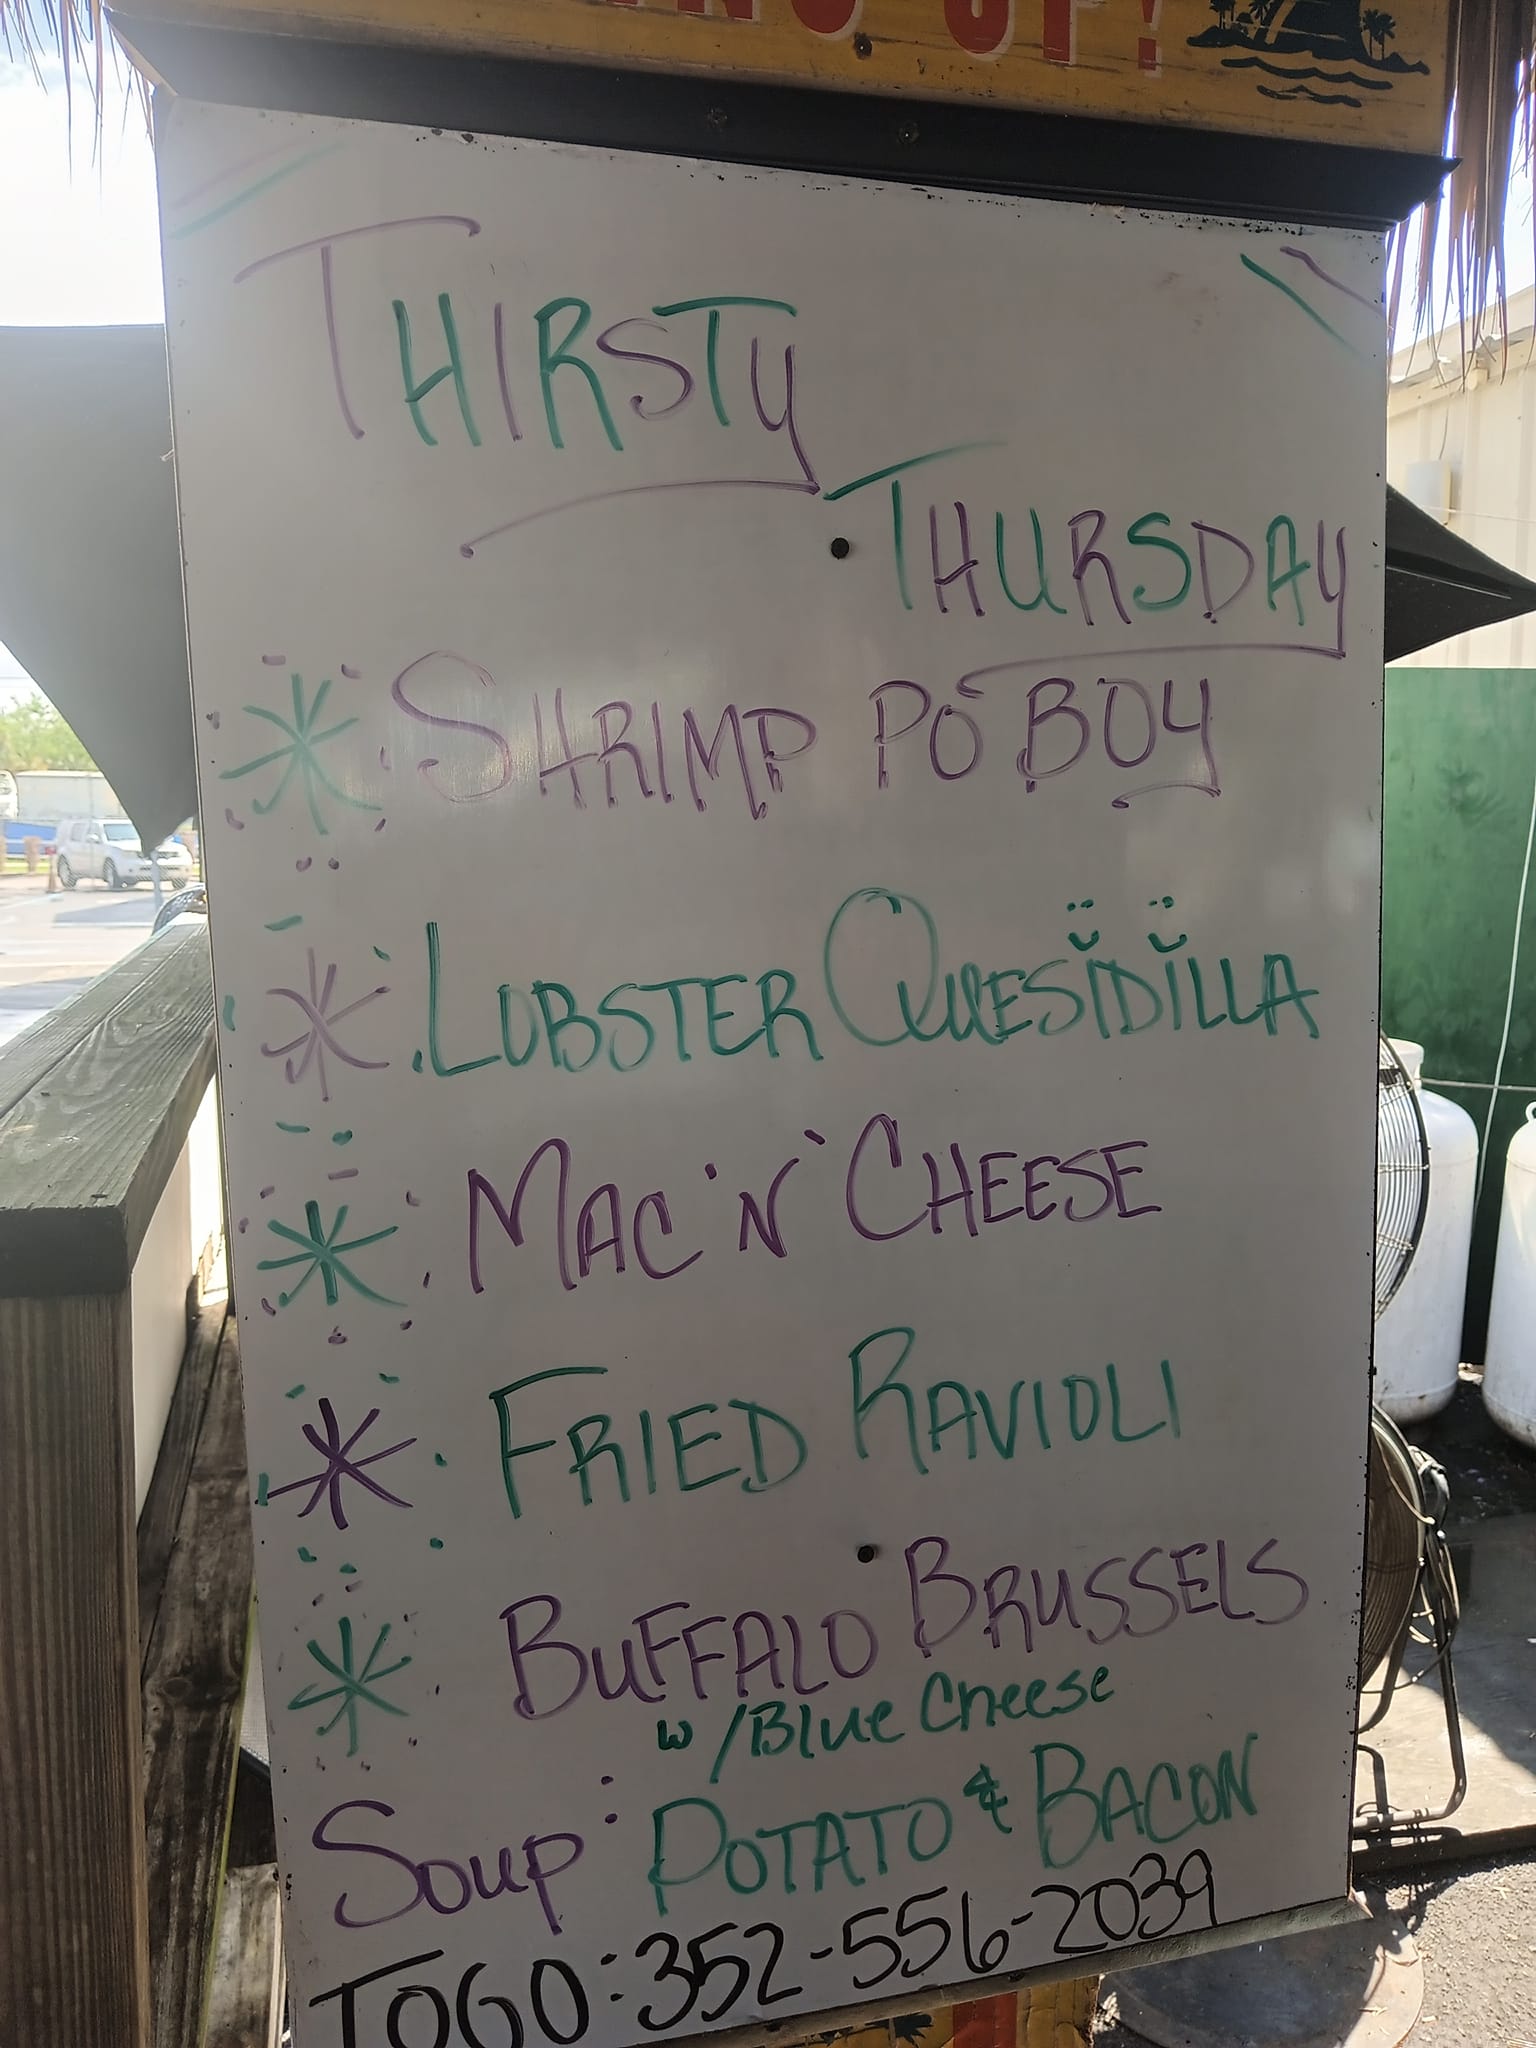 UP!
THIRSTY
THURSDAY
SHRIMP PO BOY
LOBSTER QUESIDILLA
MAC 'N' CHEESE
FRIED RAVIOLI
BUFFALO BRUSSELS
w/Blue Cheese
Soup: POTATO & BACON
TOGO: 352-556-2039